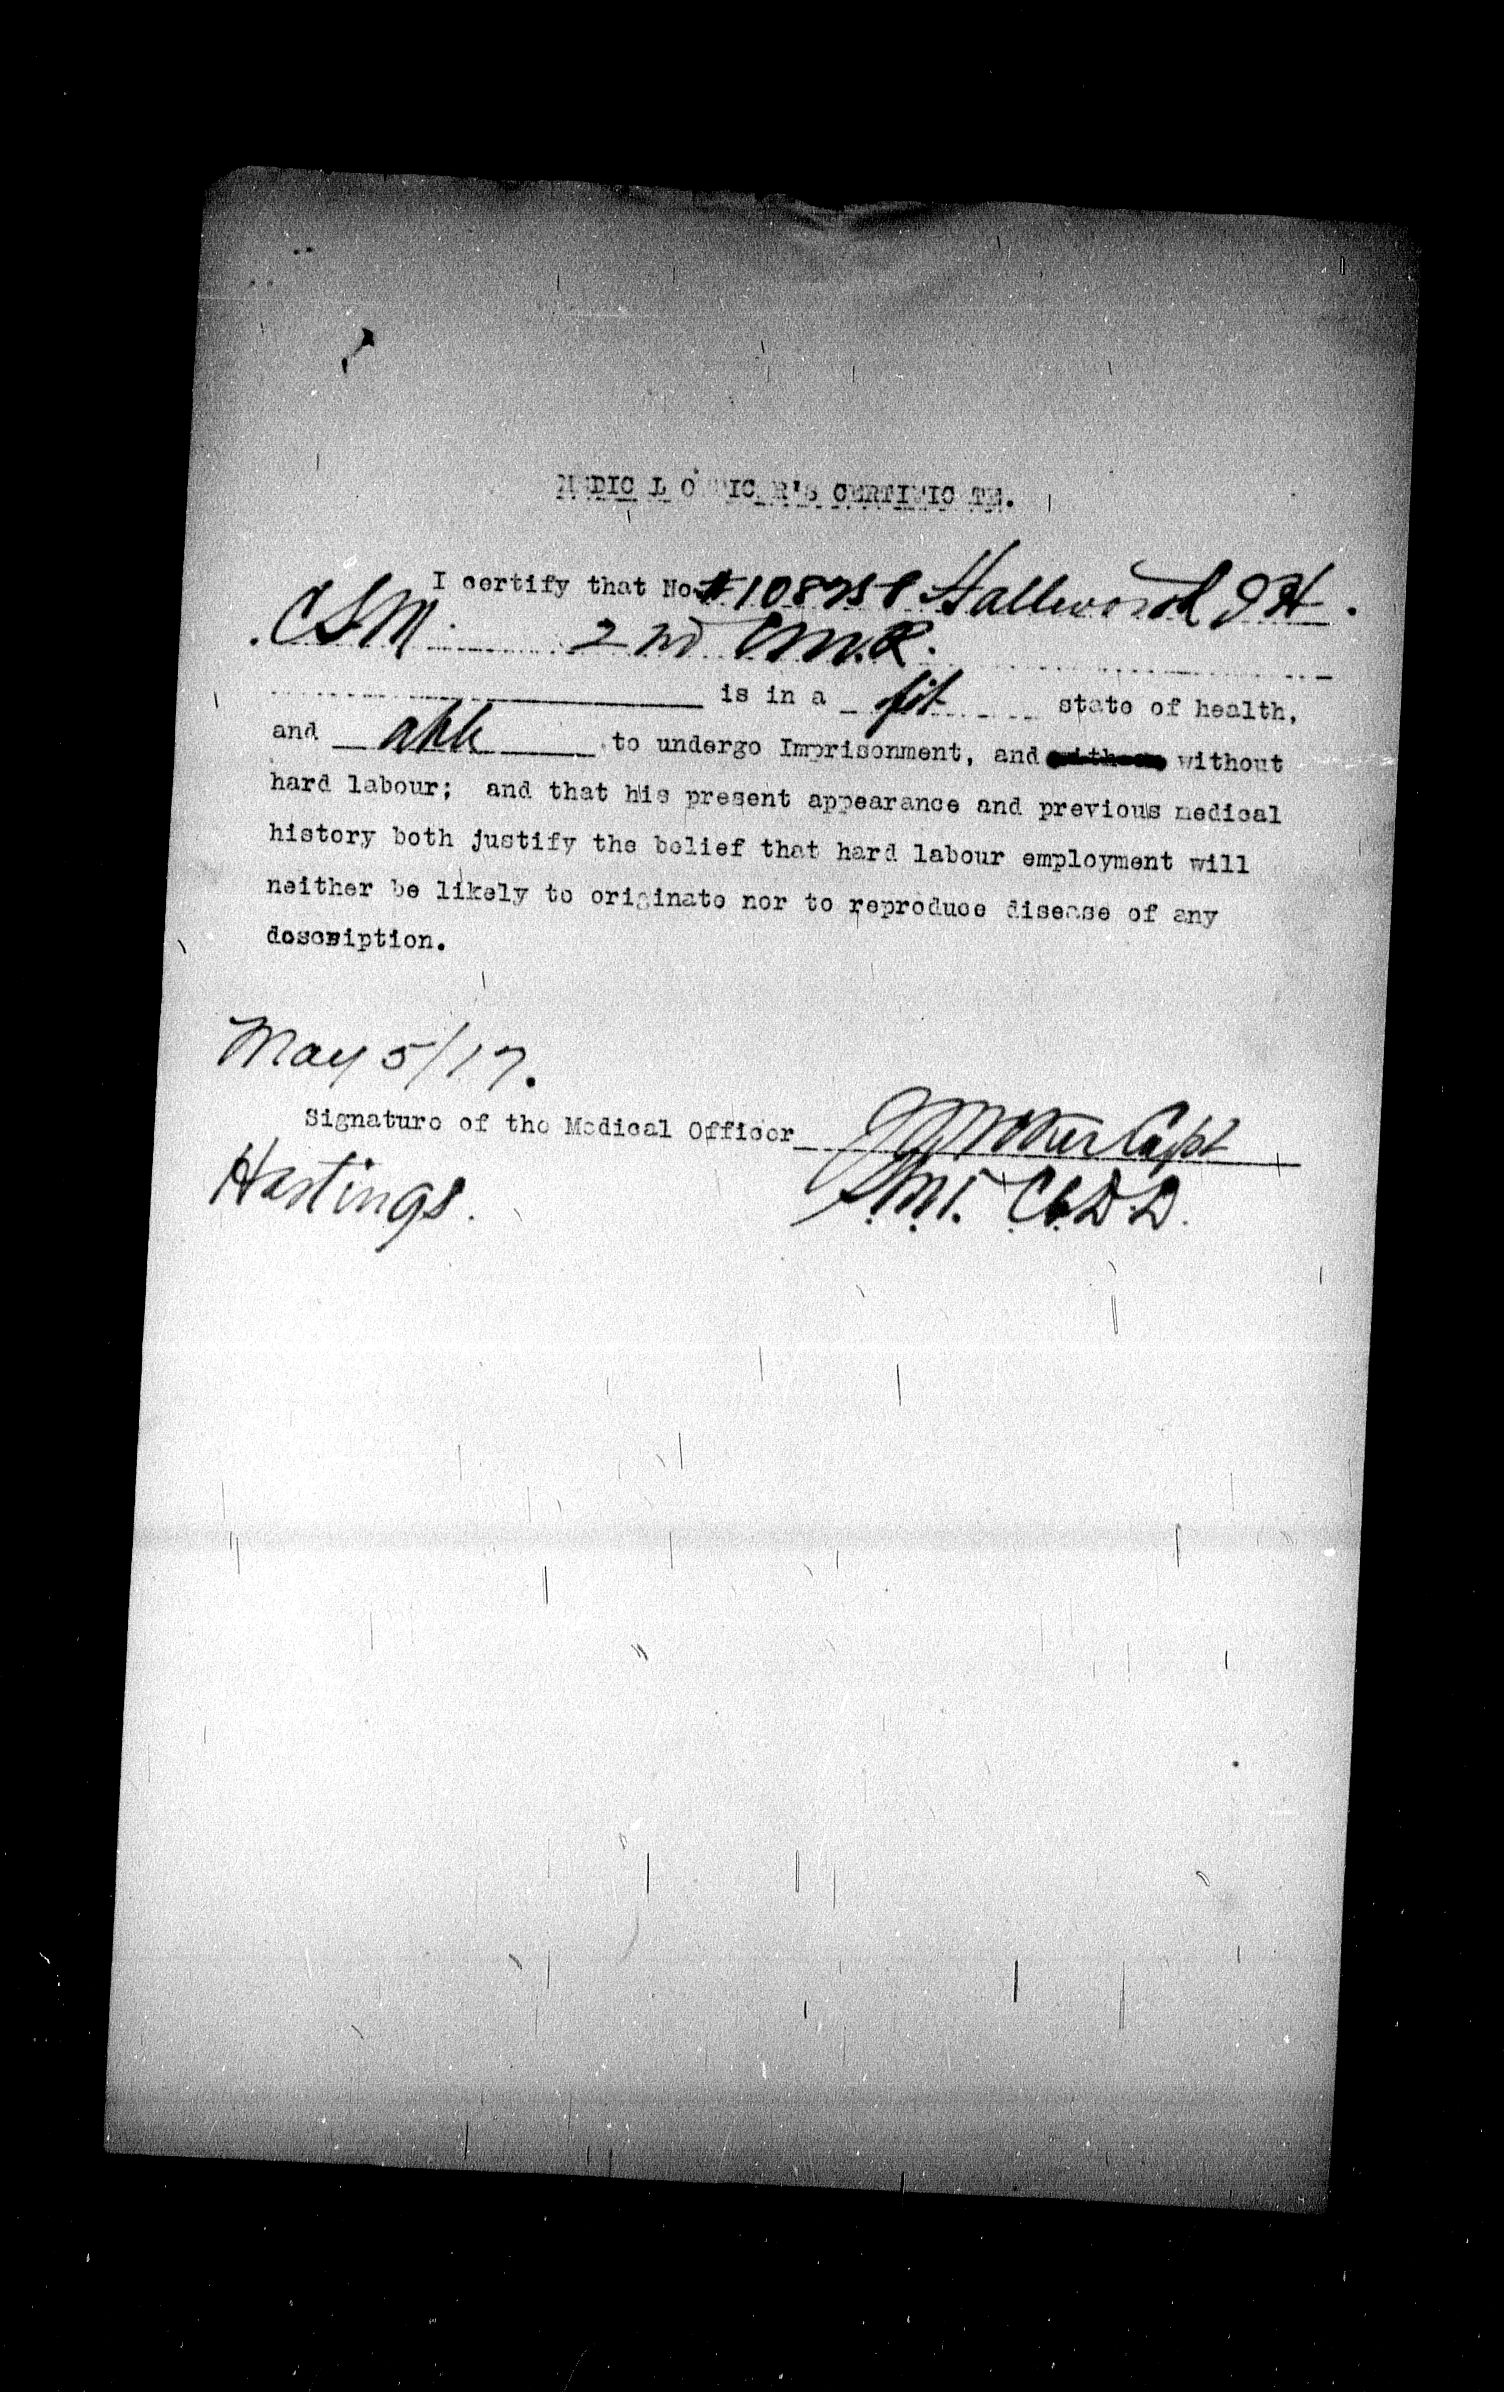 MEDICAL OFFICER'S CERTIFICATE.
I certify that No. #108258 Hallworth J H.
CSM. 2nd CM.R.
is in a fit state of health,
and able to undergo Imprisonment, and without
hard labour; and that his present appearance and previous medical
history both justify the belief that hard labour employment will
neither be likely to originate nor to reproduce disease of any
description.
May 5/17.
Signature of the Medical Officer Capt
Hastings. C.C.D.D.